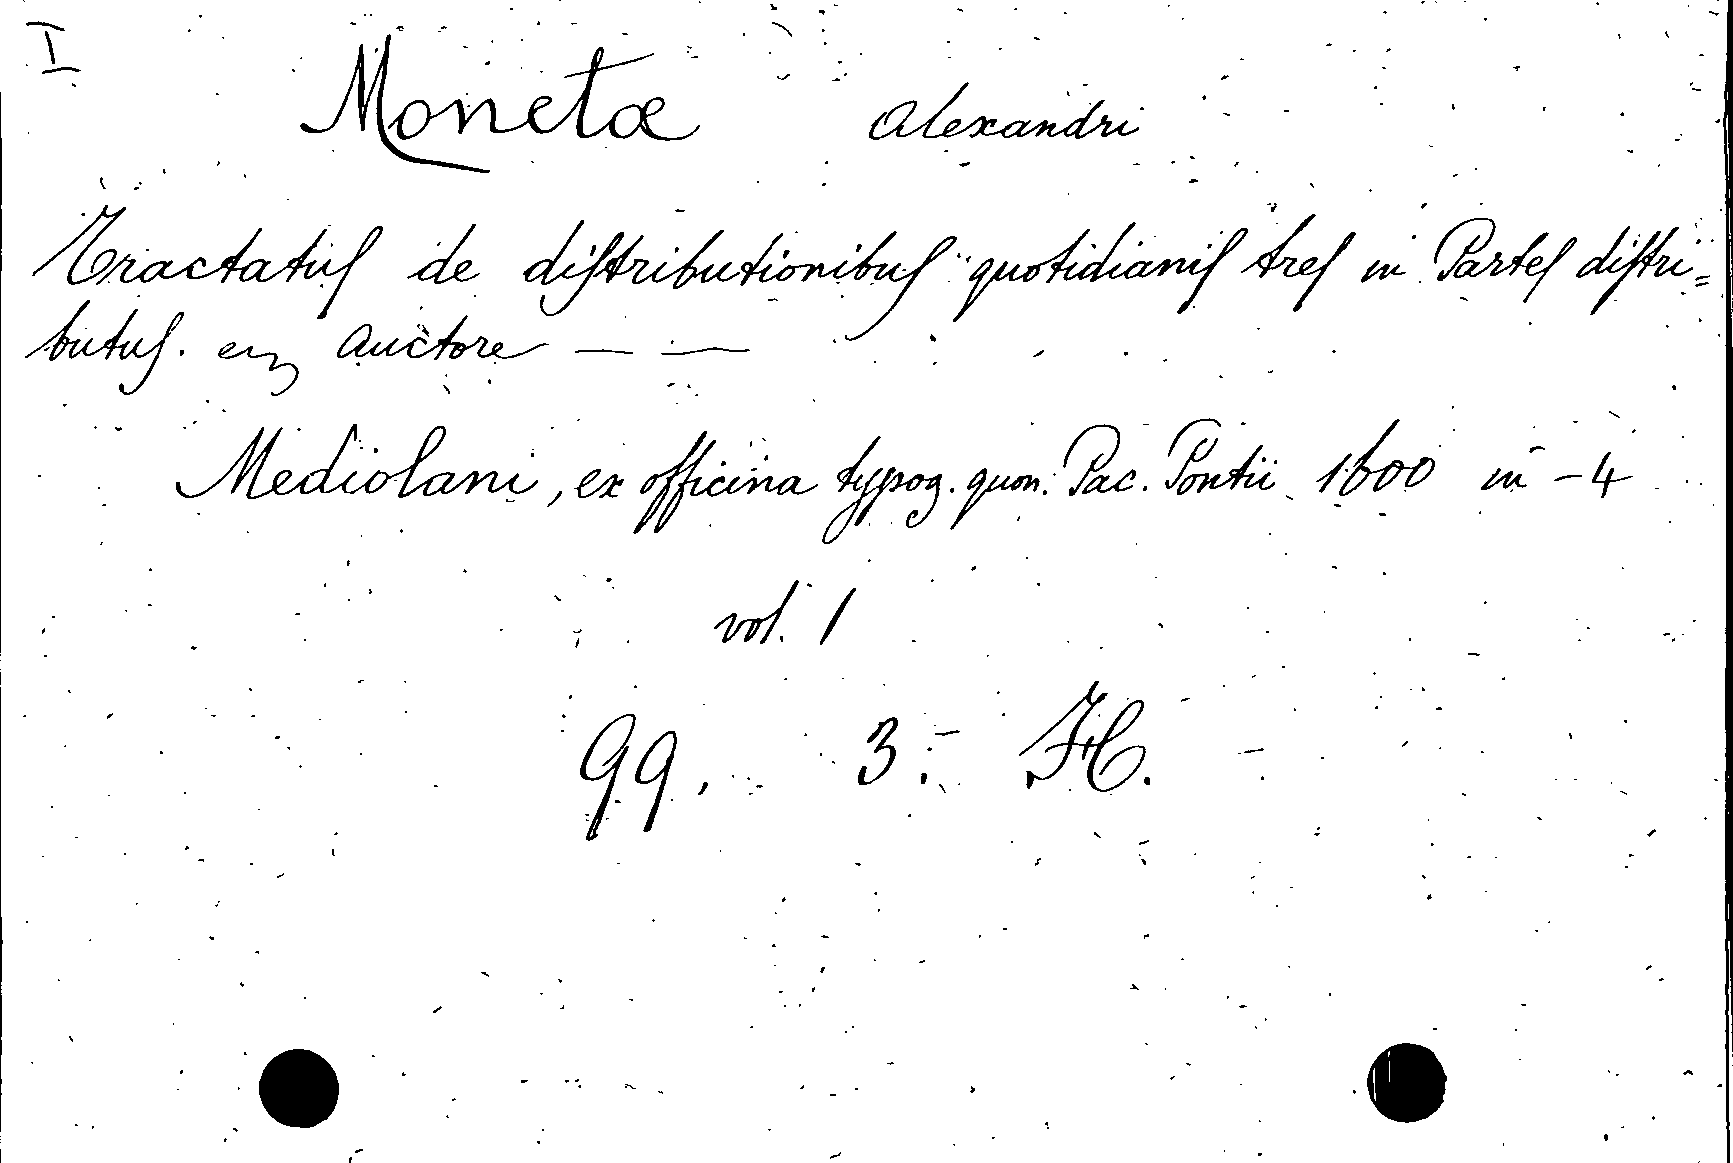 I
Monetæ Alexandri
Tractatuſ de diſtributionibuſ quotidianiſ treſ in Parteſ diſtri=
butuſ. Auctore — —
Mediolani, ex officina typog. quon. Pac. Pontii 1600 in -4
vol. 1
99. 3. H.